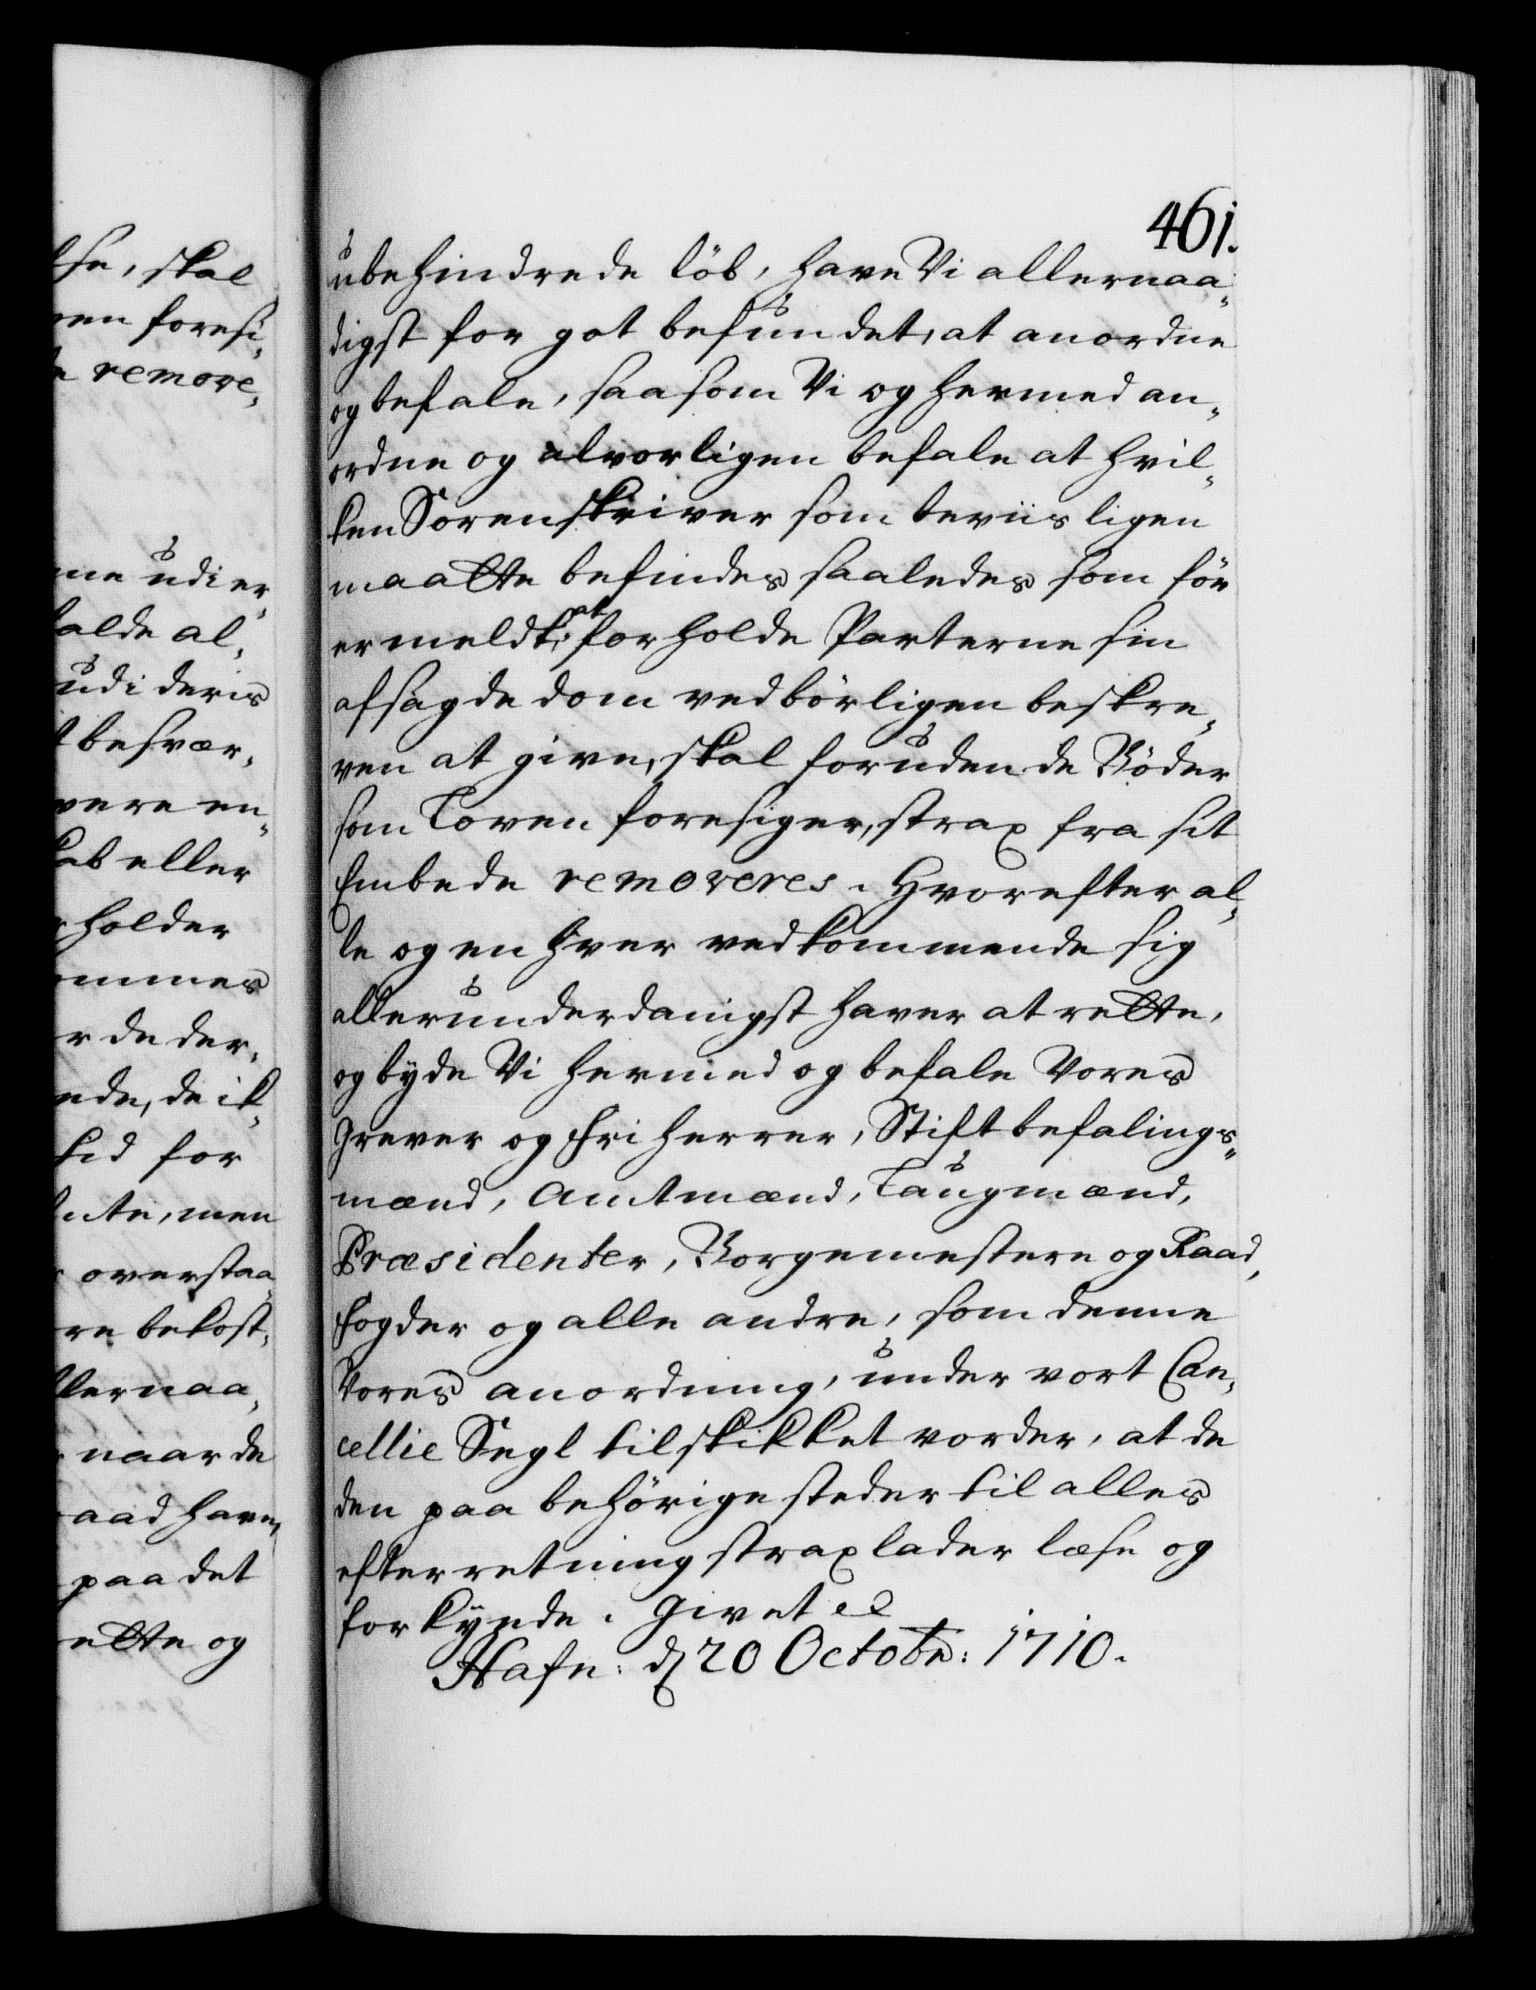 lse, skal
ven foresi-
e remove-
me udi er-
talde al-
udi deris
t besvær-
være en-
kab eller
holder
ommes
r de der-
ede, de ik-
tid for
ente, men
overstaa-
re bekost-
llernaa-
naar de
aad have,
paa det
rette og
461.
ubehindrede löb, have Vi allernaa-
digst for got befundet, at anordne
og befale, saasom Vi og hermed an-
ordne og alvorligen befale at hvil-
ken Sorenskriver som beviisligen
maatte befindes saaledes som för
ermeldt, at forholde Parterne sin
afsagde dom vedbörligen beskre-
ven at give, skal foruden de Böder
som Loven foresiger, strax fra sit
Embede removeres. Hvorefter al-
le og en hver vedkommende sig
allerunderdanigst haver at rette,
og byde Vi hermed og befale Vores
Grever og Friherrer, Stiftbefalings-
mænd, Amtmænd, Laugmænd,
Præsidenter, Borgemestere og Raad,
Fogder og alle andre, som denne
Vores anordning, under vort Can-
cellie Segl tilskikket vorder, at de
den paa behörige steder til alles
efterretning strax lader læse og
forkynde. Givet etc
Hafn: d 20 Octobr: 1710.